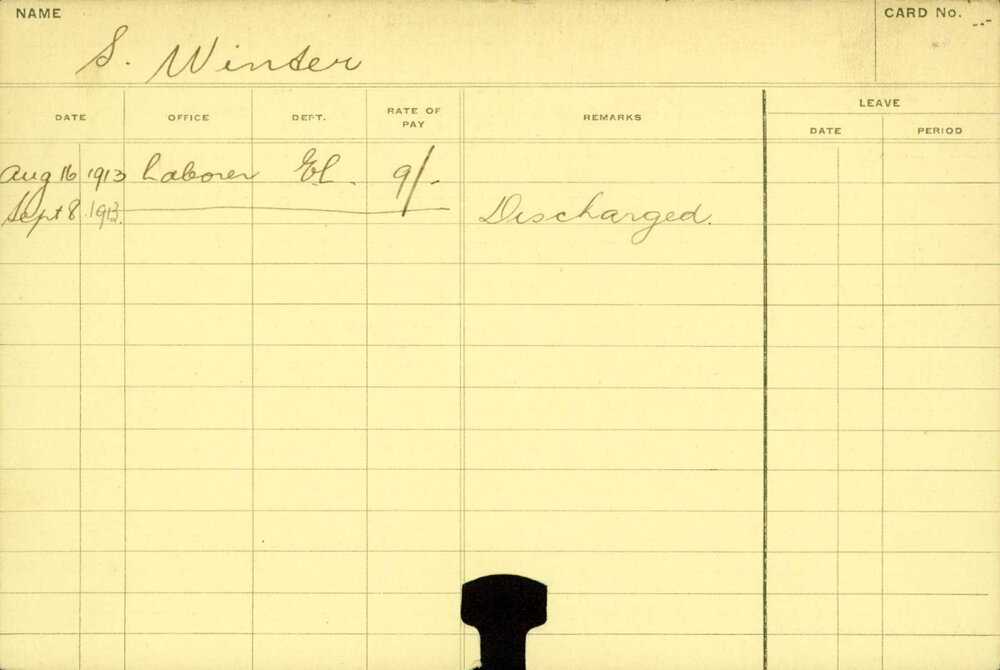 NAME
CARD No.
S. Winter
DATE OFFICE DEPT. RATE OF PAY REMARKS LEAVE
DATE PERIOD
Aug 16 1913 Laborer El. 9/-
Sept 8 1913. Discharged.